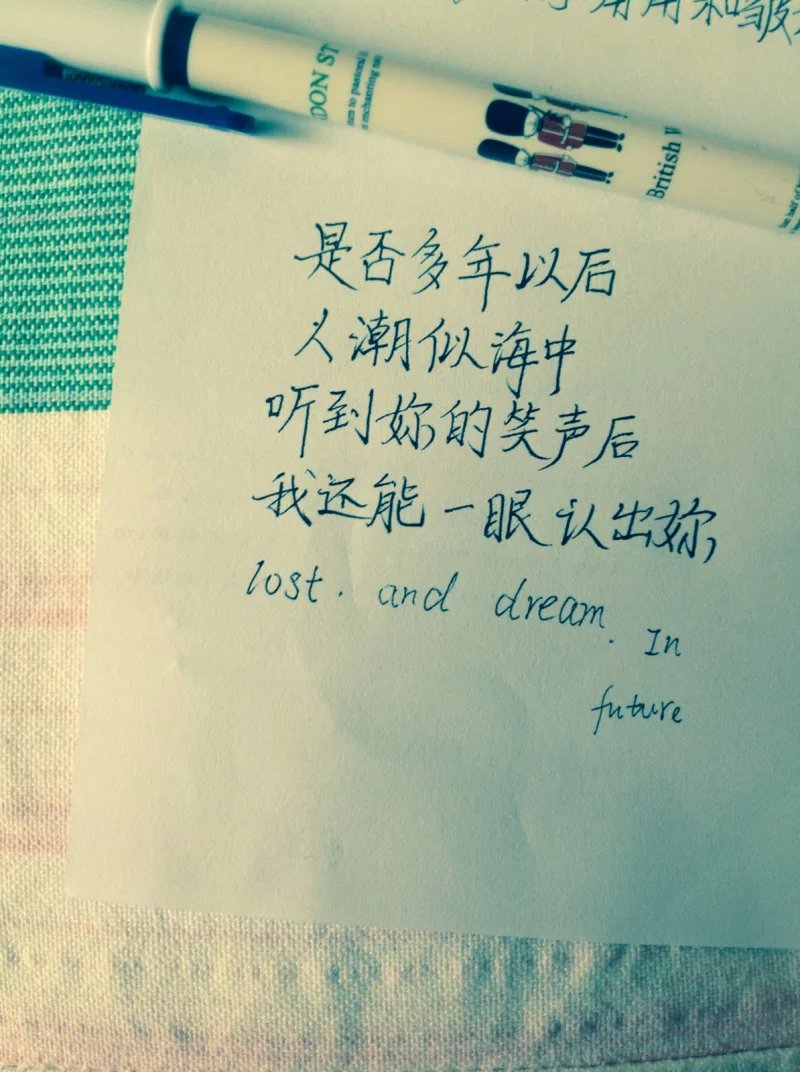 和
DON ST
British
是否多年以后
人潮似海中
听到妳的笑声后
我还能一眼认出妳
lost. and dream. In
future